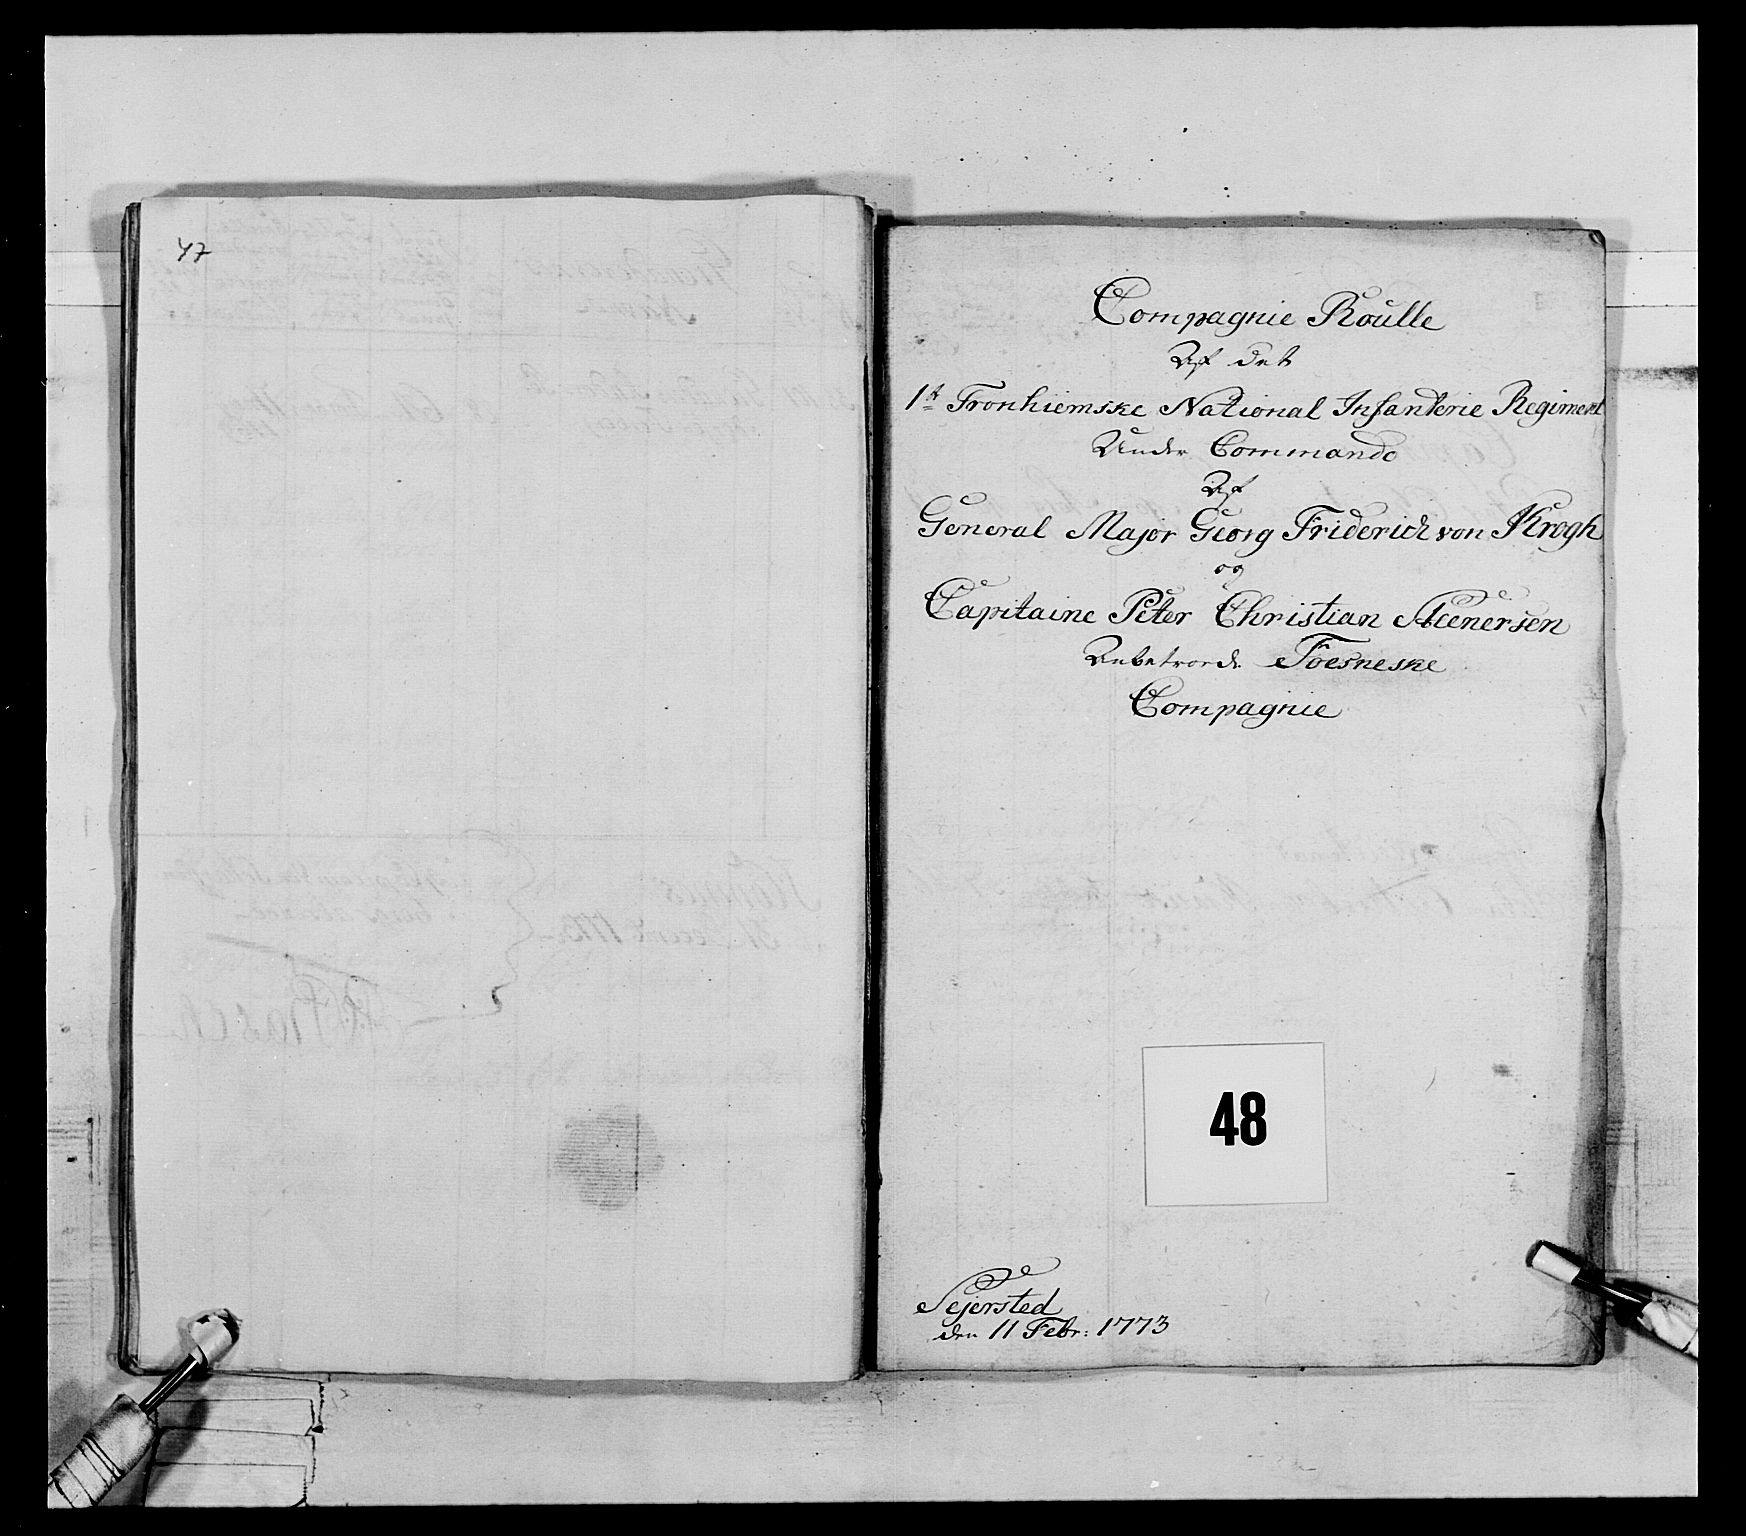 47
Compagnie Roulle
Af det
1st Tronhiemske National Infanterie Regiment
Under Commando
Af
General Major Georg Friderich von Krogh
og
Capitaine Peter Christian Meenersen
Anbetroede Foesneske
Compagnie
48
Sejersted
den 11 Febr: 1773